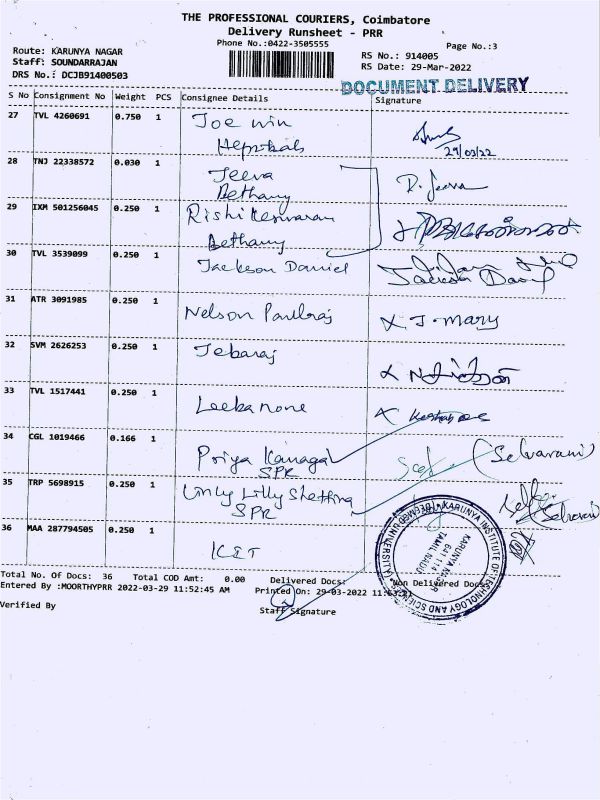 THE PROFESSIONAL COURIERS, Coimbatore
Delivery Runsheet - PRR
Phone No.:0422-3505555
Page No.:3
Route: KARUNYA NAGAR
Staff: SOUNDARRAJAN
DRS No.: DCJB91400503
RS No.: 914005
RS Date: 29-Mar-2022
DOCUMENT DELIVERY
S No Consignment No Weight PCS Consignee Details Signature
27 TVL 4260691 0.750 1 Joe win
Hepzibah
29/03/22
28 TNJ 22338572 0.030 1 Jeeva
Bethany
D. Jeeva
29 IXM 501256045 0.250 1 Rishikeswaran
Bethany
30 TVL 3539099 0.250 1 Jackson Daniel
31 ATR 3091985 0.250 1 Nelson Paulraj
X J. Mary
32 SVM 2626253 0.250 1 Jebaraj
33 TVL 1517441 0.250 1 Leebanone
34 CGL 1019466 0.166 1 Priya Kanagal
SPR
(Selvarani)
35 TRP 5698915 0.250 1 Lilly Shething
SPR
Selvarani
36 MAA 287794505 0.250 1 KET
KARUNYA INSTITUTE OF TECHNOLOGY AND SCIENCES (DEEMED UNIVERSITY)
KARUNYA NAGAR
641 114
TAMIL NADU
Total No. Of Docs: 36 Total COD Amt: 0.00 Delivered Docs: Non Delivered Docs:
Entered By :MOORTHYPRR 2022-03-29 11:52:45 AM Printed On: 29-03-2022
Verified By Staff Signature